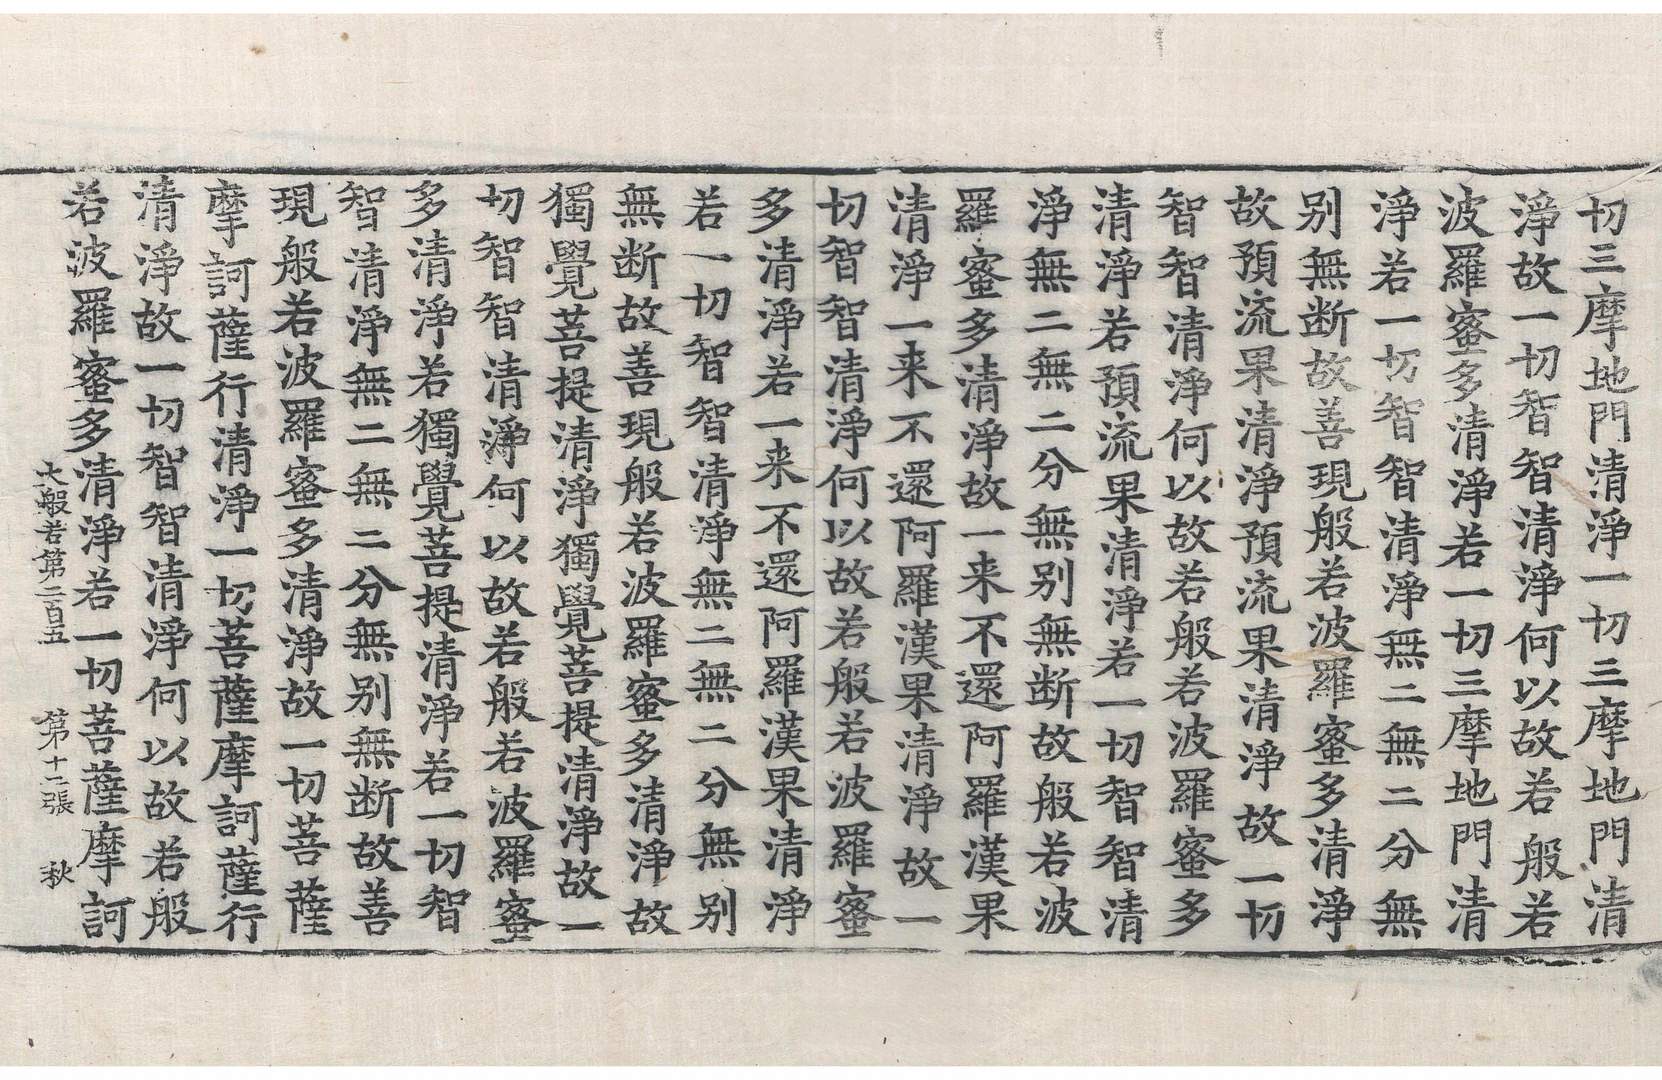 切三摩地門清淨一切三摩地門清
淨故一切智智清淨何以故若般若
波羅蜜多清淨若一切三摩地門清
淨若一切智智清淨無二無二分無
别無断故善現般若波羅蜜多清淨
故預流果清淨預流果清淨故一切
智智清淨何以故若般若波羅蜜多
清淨若預流果清淨若一切智智清
淨無二無二分無别無断故般若波
羅蜜多清淨故一来不還阿羅漢果
清淨一来不還阿羅漢果清淨故一
切智智清淨何以故若般若波羅蜜
多清淨若一来不還阿羅漢果清淨
若一切智智清淨無二無二分無别
無断故善現般若波羅蜜多清淨故
獨覺菩提清淨獨覺菩提清淨故一
切智智清淨何以故若般若波羅蜜
多清淨若獨覺菩提清淨若一切智
智清淨無二無二分無别無断故善
現般若波羅蜜多清淨故一切菩薩
摩訶薩行清淨一切菩薩摩訶薩行
清淨故一切智智清淨何以故若般
若波羅蜜多清淨若一切菩薩摩訶
大般若第二百五 第十二張 秋